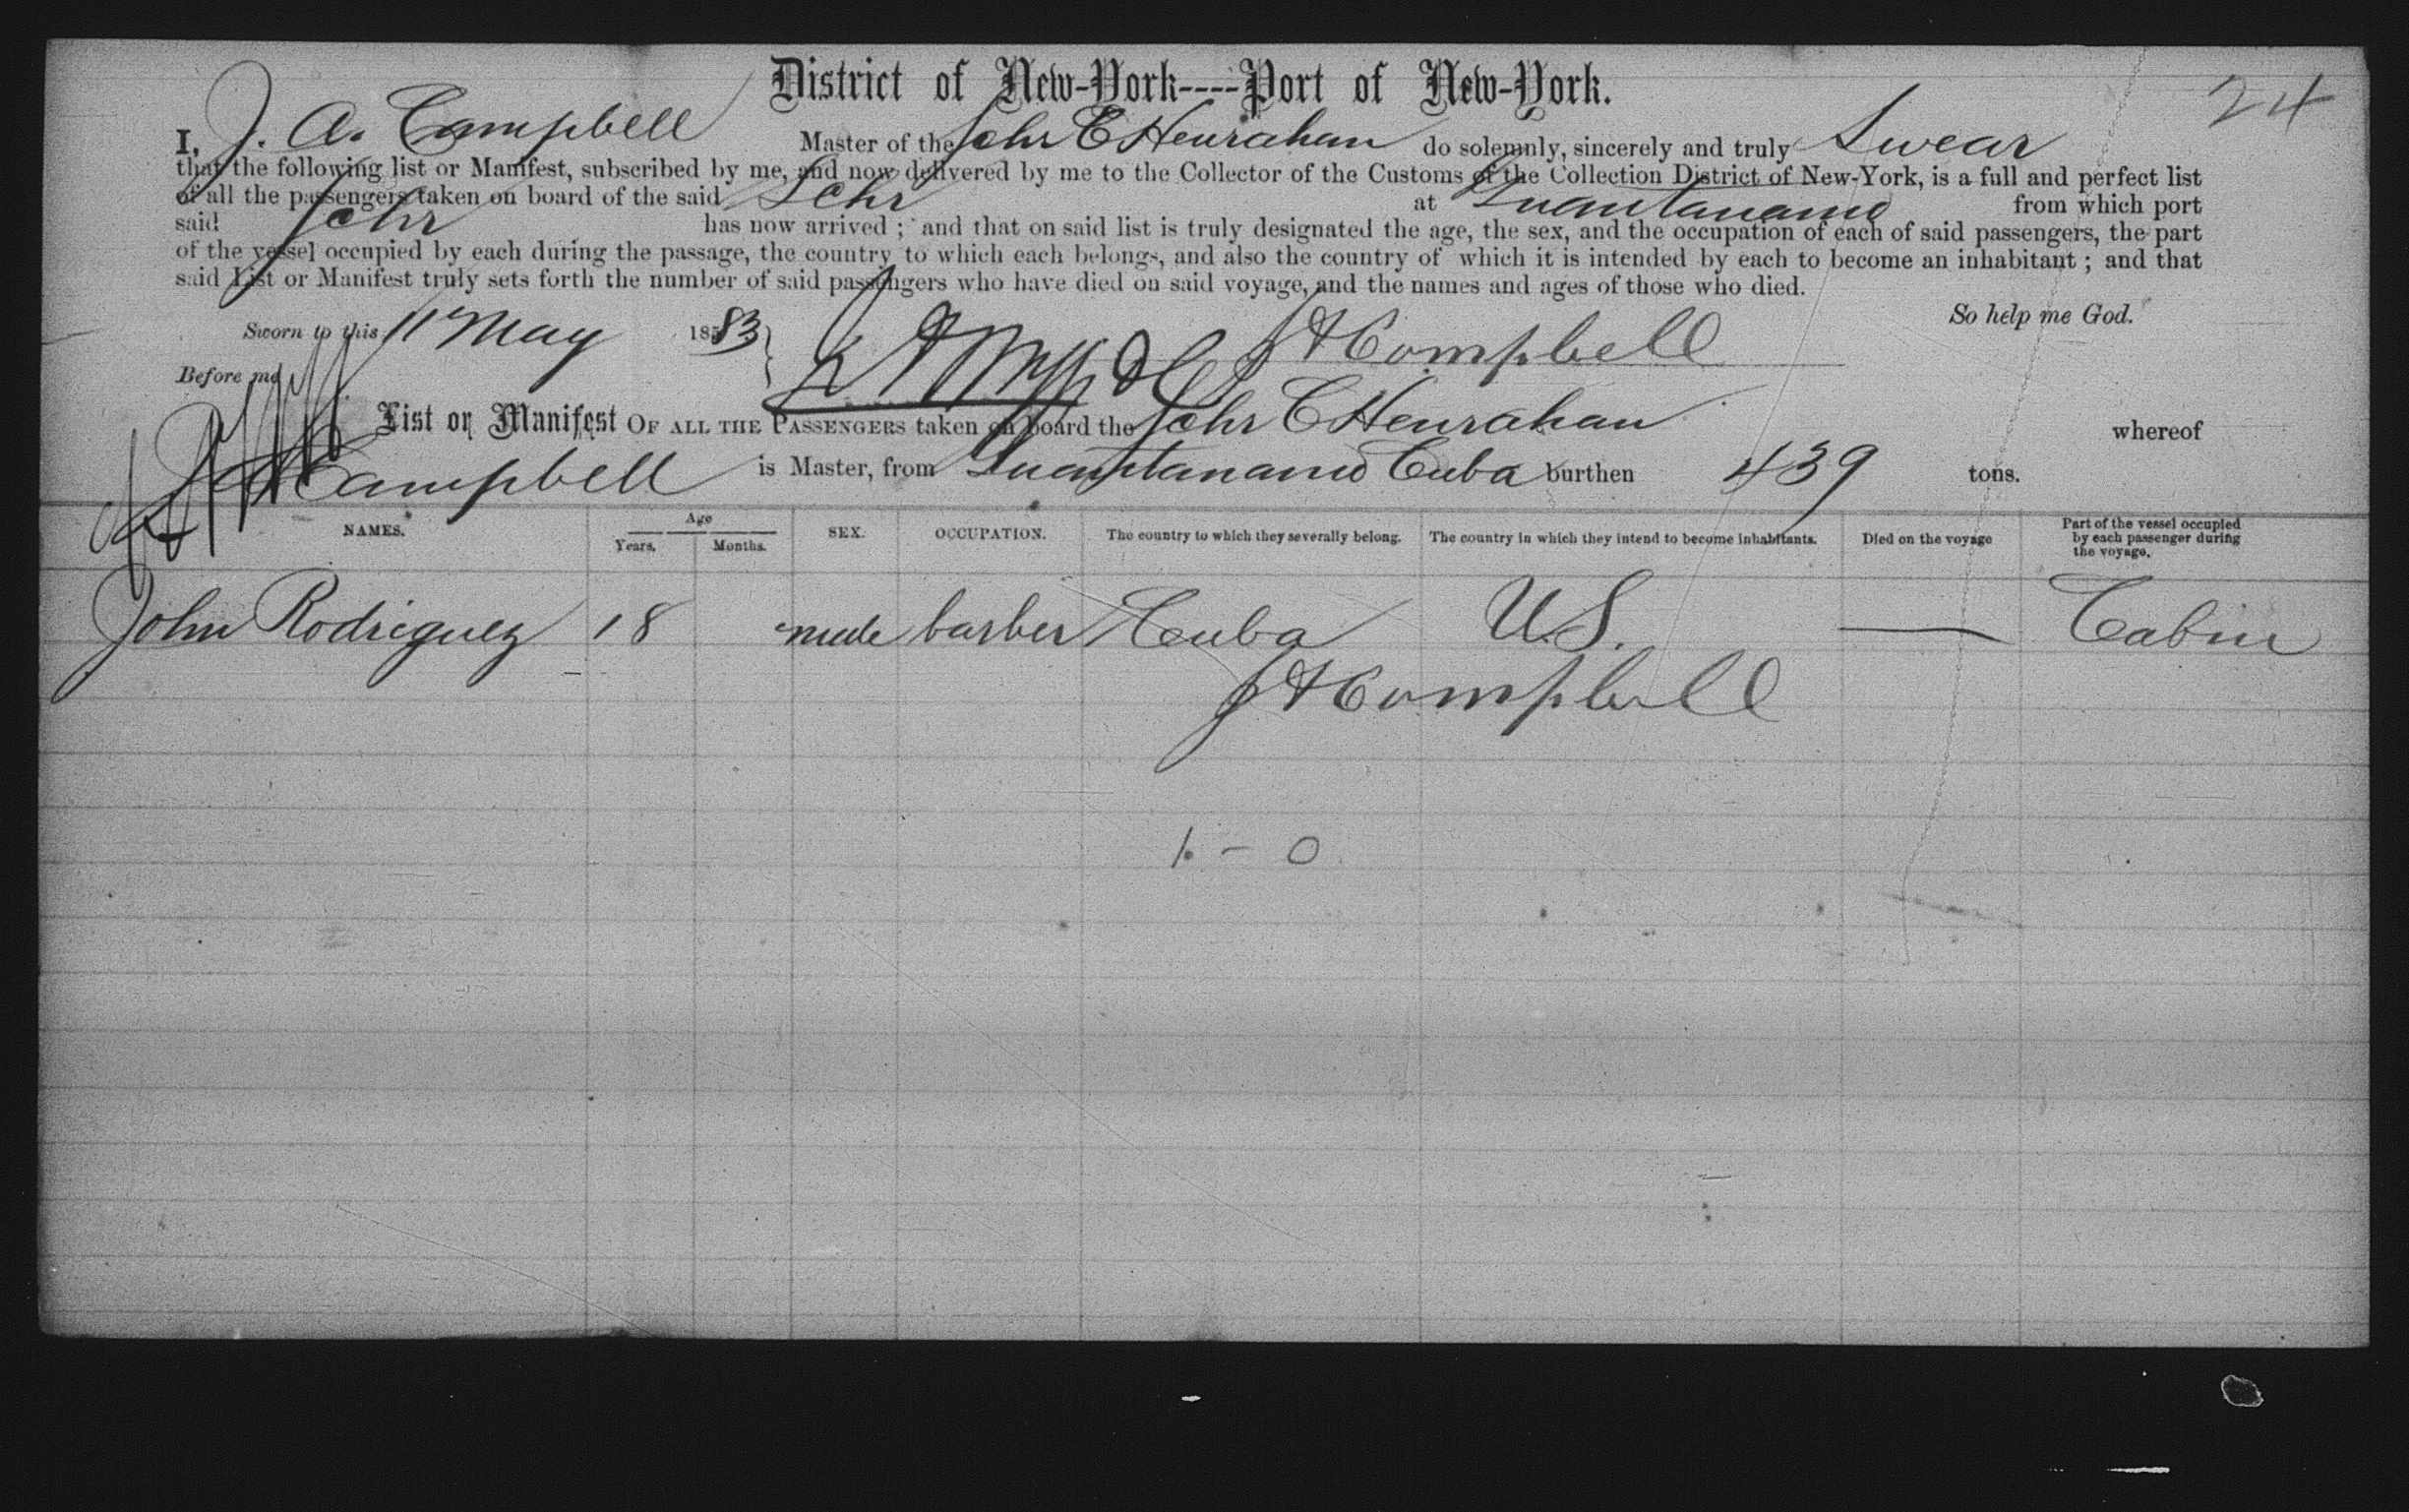 District of New-York----Port of New-York.
24
I, J. A. Campbell Master of the Schr C Henrahan do solemnly, sincerely and truly Swear
that the following list or Manifest, subscribed by me, and now delivered by me to the Collector of the Customs of the Collection District of New-York, is a full and perfect list
of all the passengers taken on board of the said Schr at Guantanamo from which port
said Schr has now arrived ; and that on said list is truly designated the age, the sex, and the occupation of each of said passengers, the part
of the vessel occupied by each during the passage, the country to which each belongs, and also the country of which it is intended by each to become an inhabitant ; and that
said List or Manifest truly sets forth the number of said passengers who have died on said voyage, and the names and ages of those who died.
So help me God.
Sworn to this 11 May 1883 J A Campbell
Before me
List or Manifest OF ALL THE PASSENGERS taken on board the Schr C Henrahan whereof
J A Campbell is Master, from Guantanamo Cuba burthen 439 tons.
NAMES. Age Years. Months. SEX. OCCUPATION. The country to which they severally belong. The country in which they intend to become inhabitants. Died on the voyage Part of the vessel occupied by each passenger during the voyage.
John Rodriguez 18 male barber Cuba U.S. — Cabin
J A Campbell
1 - 0